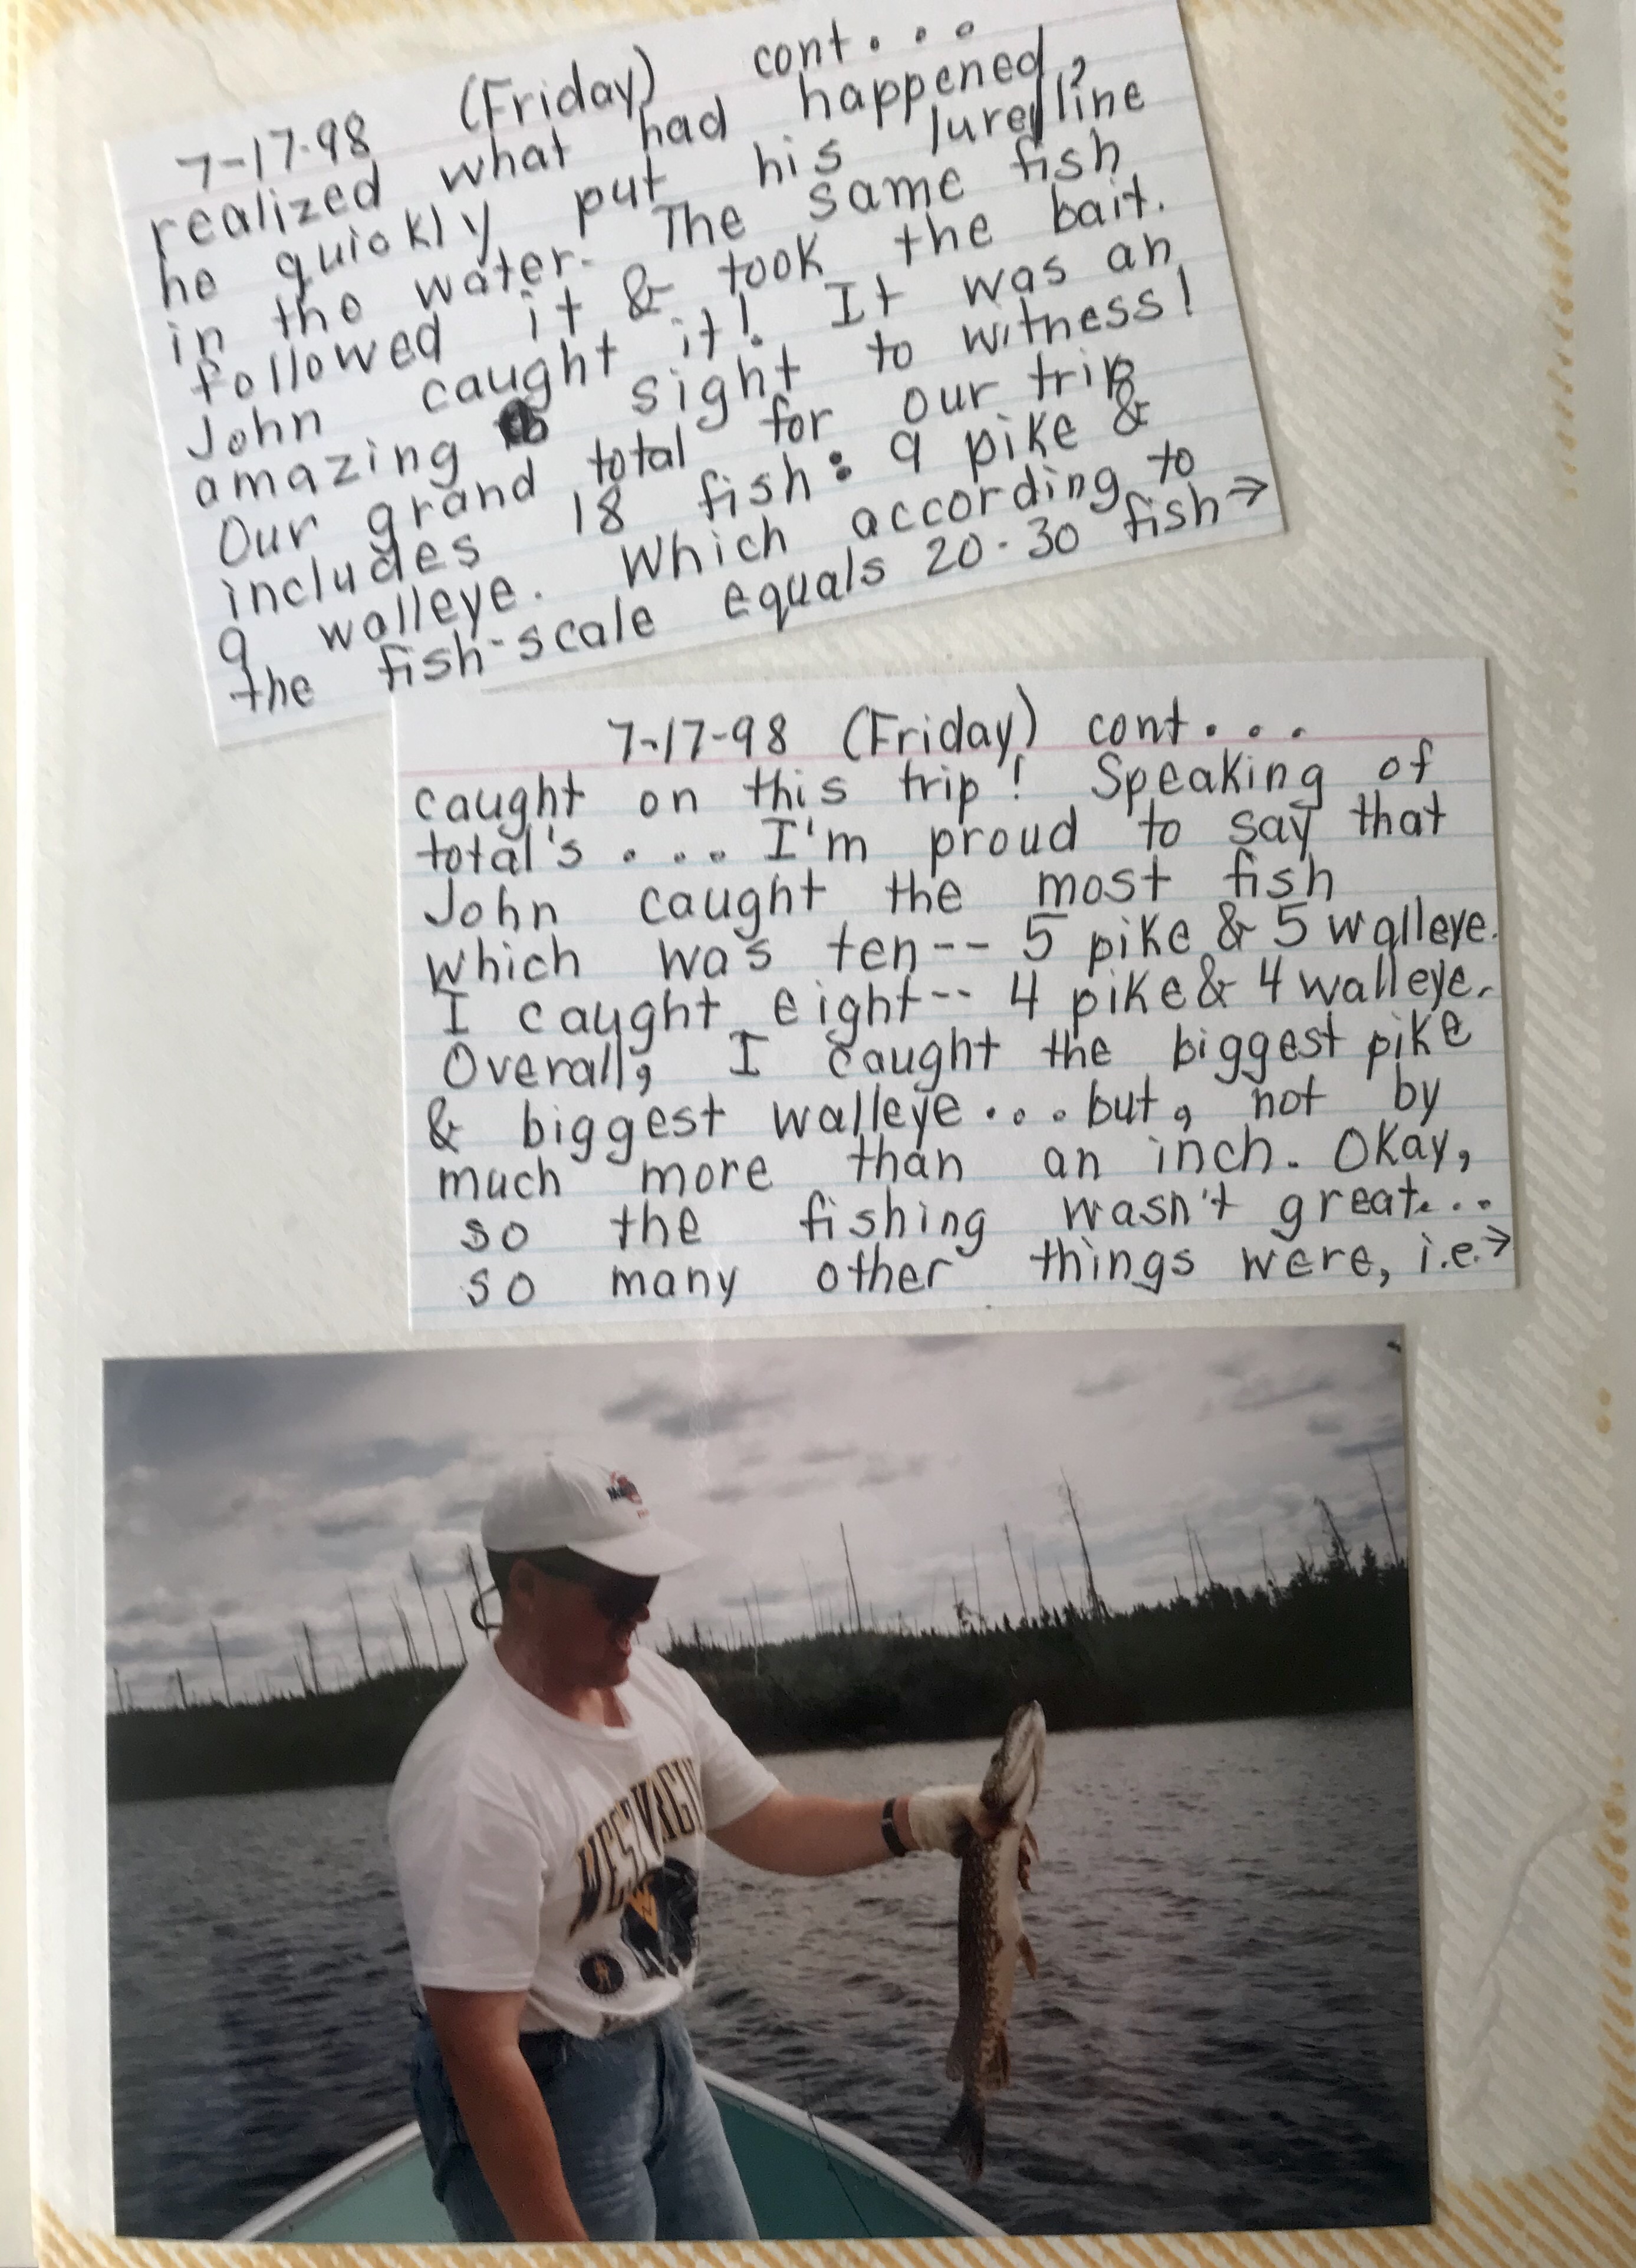 7-17-98 (Friday) cont...
realized what had happened,
he quickly put his lure/line
in the water. The same fish
followed it & took the bait.
John caught it! It was an
amazing sight to witness!
Our grand total for our trip
includes 18 fish: 9 pike &
9 walleye. Which according to
the fish-scale equals 20-30 fish→
7-17-98 (Friday) cont...
caught on this trip! Speaking of
total's .... I'm proud to say that
John caught the most fish
which was ten-- 5 pike & 5 walleye.
I caught eight-- 4 pike & 4 walleye.
Overall, I caught the biggest pike
& biggest walleye...but, not by
much more than an inch. Okay,
so the fishing wasn't great...
so many other things were, i.e.→
WEST VIRGI